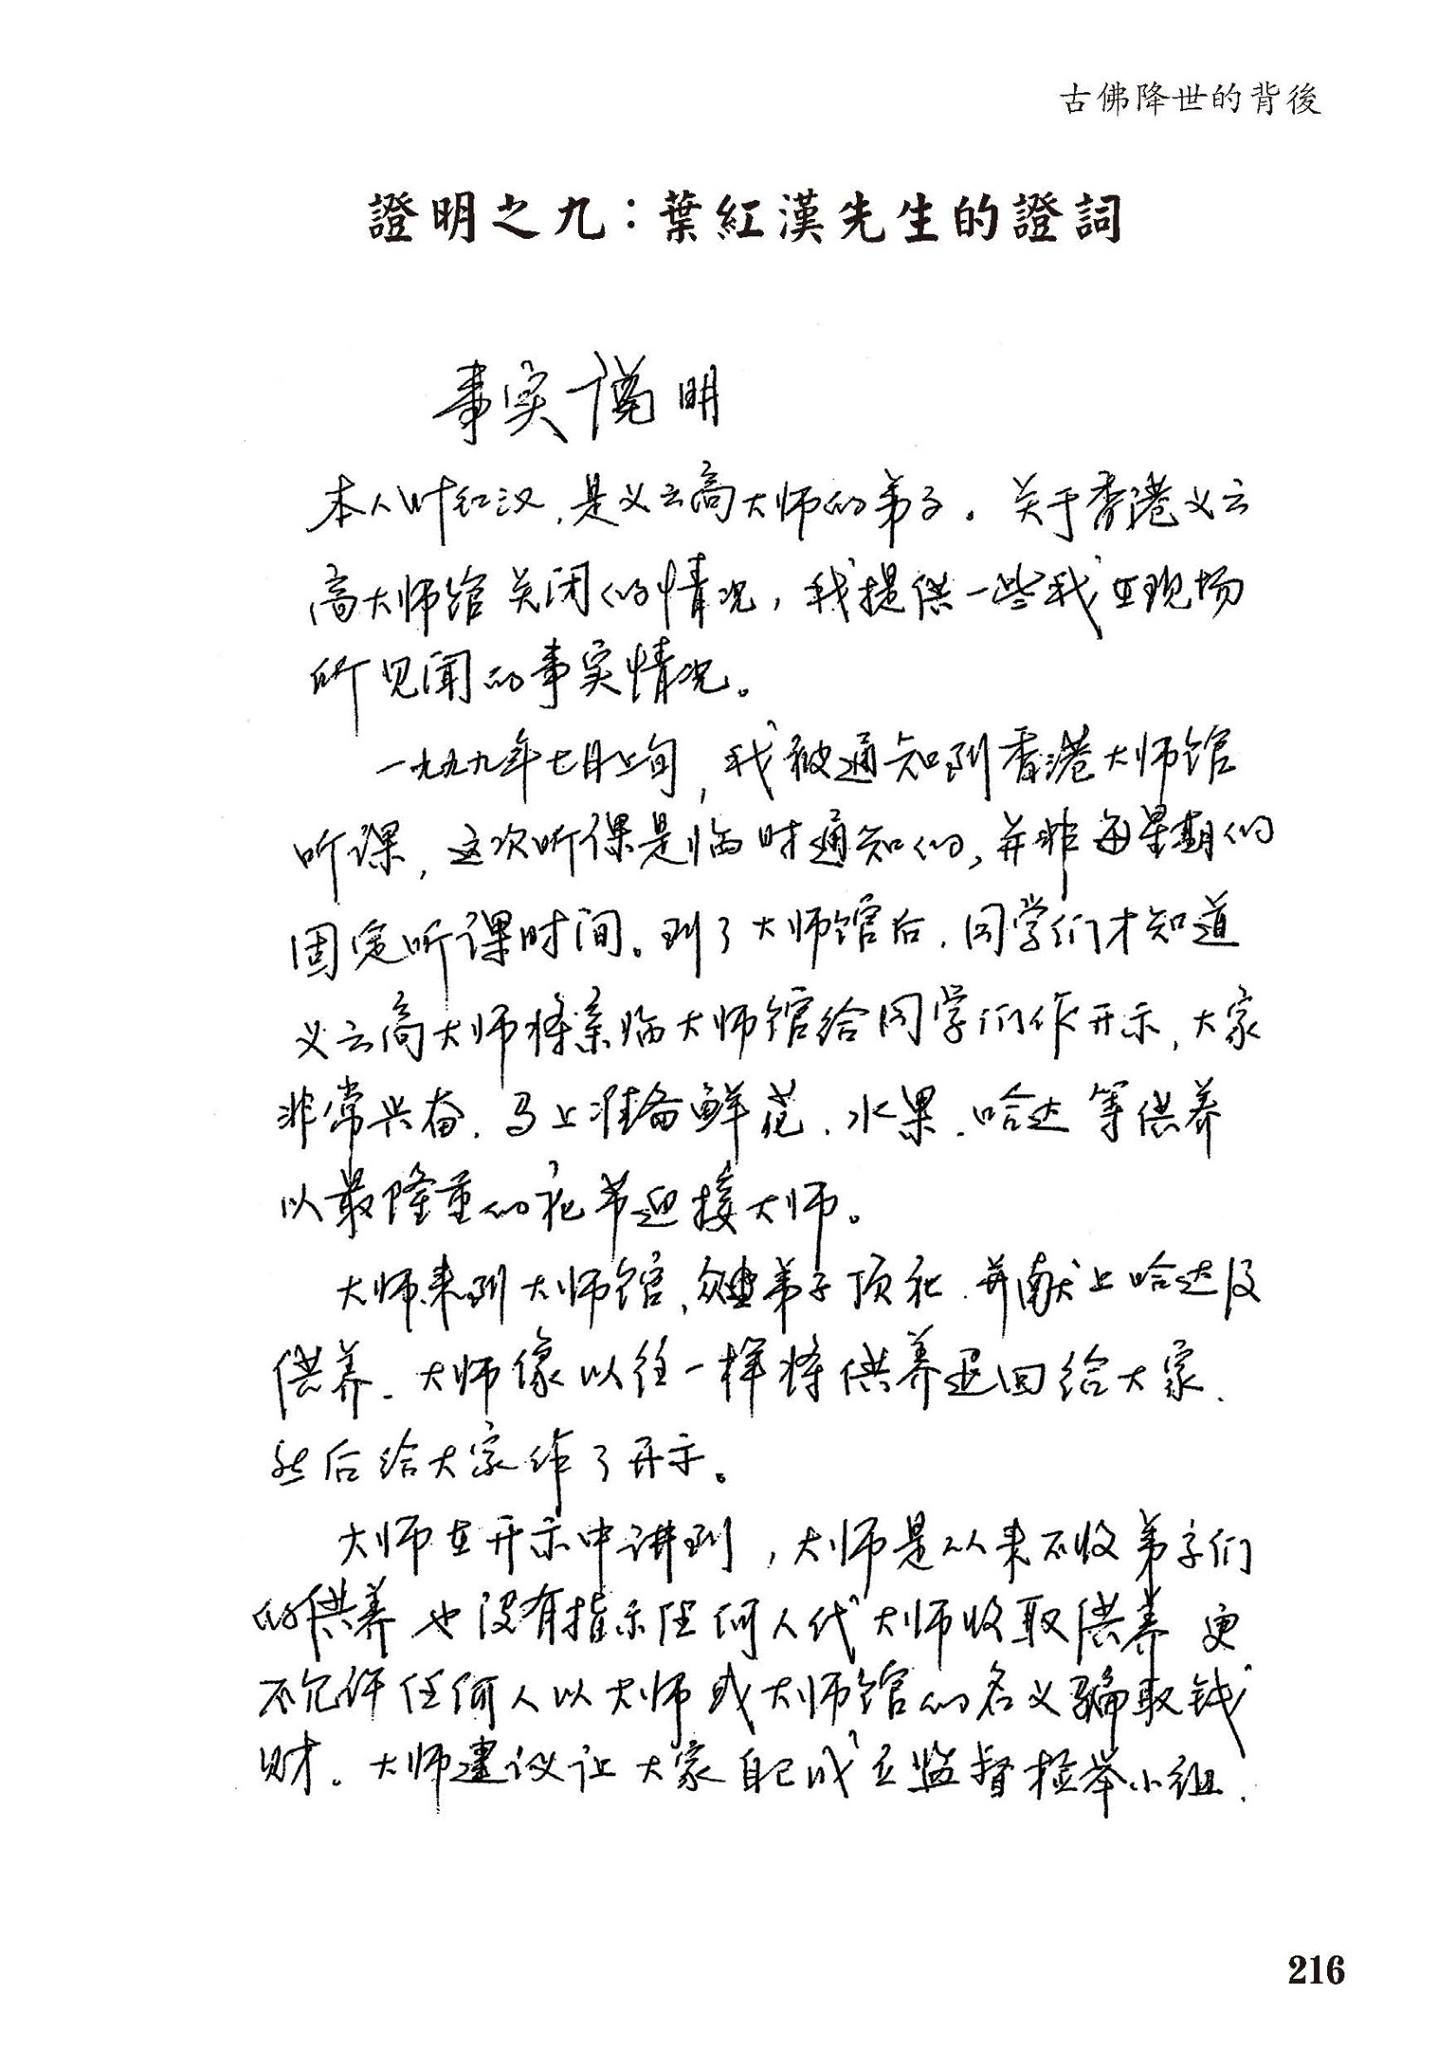 古佛降世的背後
證明之九：葉紅漢先生的證詞
事实说明
本人叶红汉，是义云高大师的弟子。关于香港义云
高大师馆关闭的情况，我提供一些我在现场
所见闻的事实情况。
一九九九年七月上旬，我被通知到香港大师馆
听课，这次听课是临时通知的，并非每星期的
固定听课时间。到了大师馆后，同学们才知道
义云高大师将亲临大师馆给同学们作开示，大家
非常兴奋，马上准备鲜花、水果、哈达等供养
以最隆重的礼节迎接大师。
大师来到大师馆，众弟子顶礼，并献上哈达及
供养。大师像以往一样将供养退回给大家，
然后给大家作了开示。
大师在开示中讲到，大师是从来不收弟子们
的供养也没有指示任何人代大师收取供养更
不允许任何人以大师或大师馆的名义骗取钱
财。大师建议让大家自己成立监督检举小组，
216